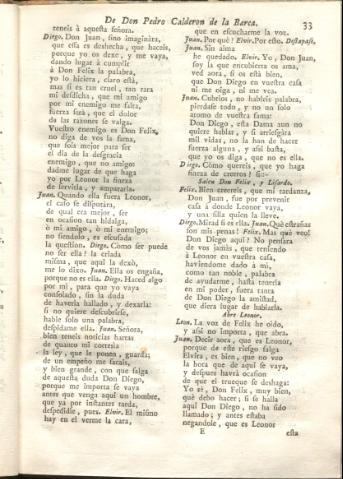 De Don Pedro Calderon de la Barca.
33
teneis à aquesta señora.
Diego. Don Juan, sino imaginàra,
que essa es deshecha, que haceis,
porque yo os dexe, y me vaya,
dando lugar à cumplir
à Don Felix la palabra,
yo lo hiciera, claro està,
mas si es tan cruel, tan rara
mi desdicha, que mi amigo
por mi enemigo me falta,
fuerza serà, que el dolor
dà las razones de valga.
Vuestro enemigo es Don Felix,
no diga de vos la fama,
que sois mejor para ser
el dia de la desgracia
enemigo, que no amigo:
dadme lugar de que haga
yo por Leonor la fineza
de servirla, y ampararla.
Juan. Quando ella fuera Leonor,
el caso se disputàra,
de qual era mejor, ser
en ocasion tan hidalga,
ò mi amigo, ò mi enemigo;
no siendolo, es escusada
la question. Diego. Como ser puede
no ser ella? la criada
misma, que aqui la dexò,
me lo dixo. Juan. Ella os engaña,
porque no es ella. Diego. Haced algo
por mi, para que yo vaya
consolado, sin la duda
de haverla hallado, y dexarla:
si no quiere descubrirse,
hable solo una palabra,
despidame ella. Juan. Señora,
bien teneis noticias hartas
de quanto mi cortesia
la ley, que le poneis, guarda;
de un empeño me sacais,
y bien grande, con que salga
de aquesta duda Don Diego,
porque me importa se vaya
antes que venga aqui un hombre,
que ya por instantes tarda,
despedidle, pues. Elvir. El mismo
hay en el verme la cara,
que en escucharme la voz.
Juan. Por què? Elvir. Por esto. Destapase.
Juan. Sin alma
he quedado. Elvir. Yo, Don Juan,
soy la que encubierta os ama,
ved aora, si os està bien,
que Don Diego en vuestra casa
ni me oiga, ni me vea.
Juan. Cubrios, no hableis palabra,
pierdase todo, y no un solo
atomo de vuestra fama:
Don Diego, esta Dama aun no
quiere hablar, y si arriesgàra
mil vidas, no la han de hacer
fuerza alguna, y assi basta,
que yo os diga, que no es ella.
Diego. Còmo quereis, que yo haga
fineza de creeros? sin-
Salen Don Felix, y Lisardo.
Felix. Bien creereis, que mi tardanza,
Don Juan, fue por prevenir
casa à donde Leonor vaya,
y una silla quien la lleve.
Diego. Mirad si es ella. Juan. Què estrañas
son mis penas! Felix. Mas què veo!
Don Diego aqui? No pensàra
de vos jamàs, que teniendo
à Leonor en vuestra casa,
haviendome dado à mi,
como tan noble, palabra
de ayudarme, hasta tenerla
en mi poder, fuera tanta
de Don Diego la amistad,
que diera lugar de hablarla.
Abre Leonor.
Leon. La voz de Felix he oìdo,
y assi no importa, que abra.
Juan. Decir aora, que es Leonor,
porque de este riesgo salga
Elvira, es bien, que no veo
la hora de que aqui se vaya,
y despues havrà ocasion
de que el trueque se deshaga:
Yo sè, Don Felix, muy bien,
què debo hacer; si se halla
aqui Don Diego, no ha sido
llamado; y antes estaba
negandole, que es Leonor
E
esta